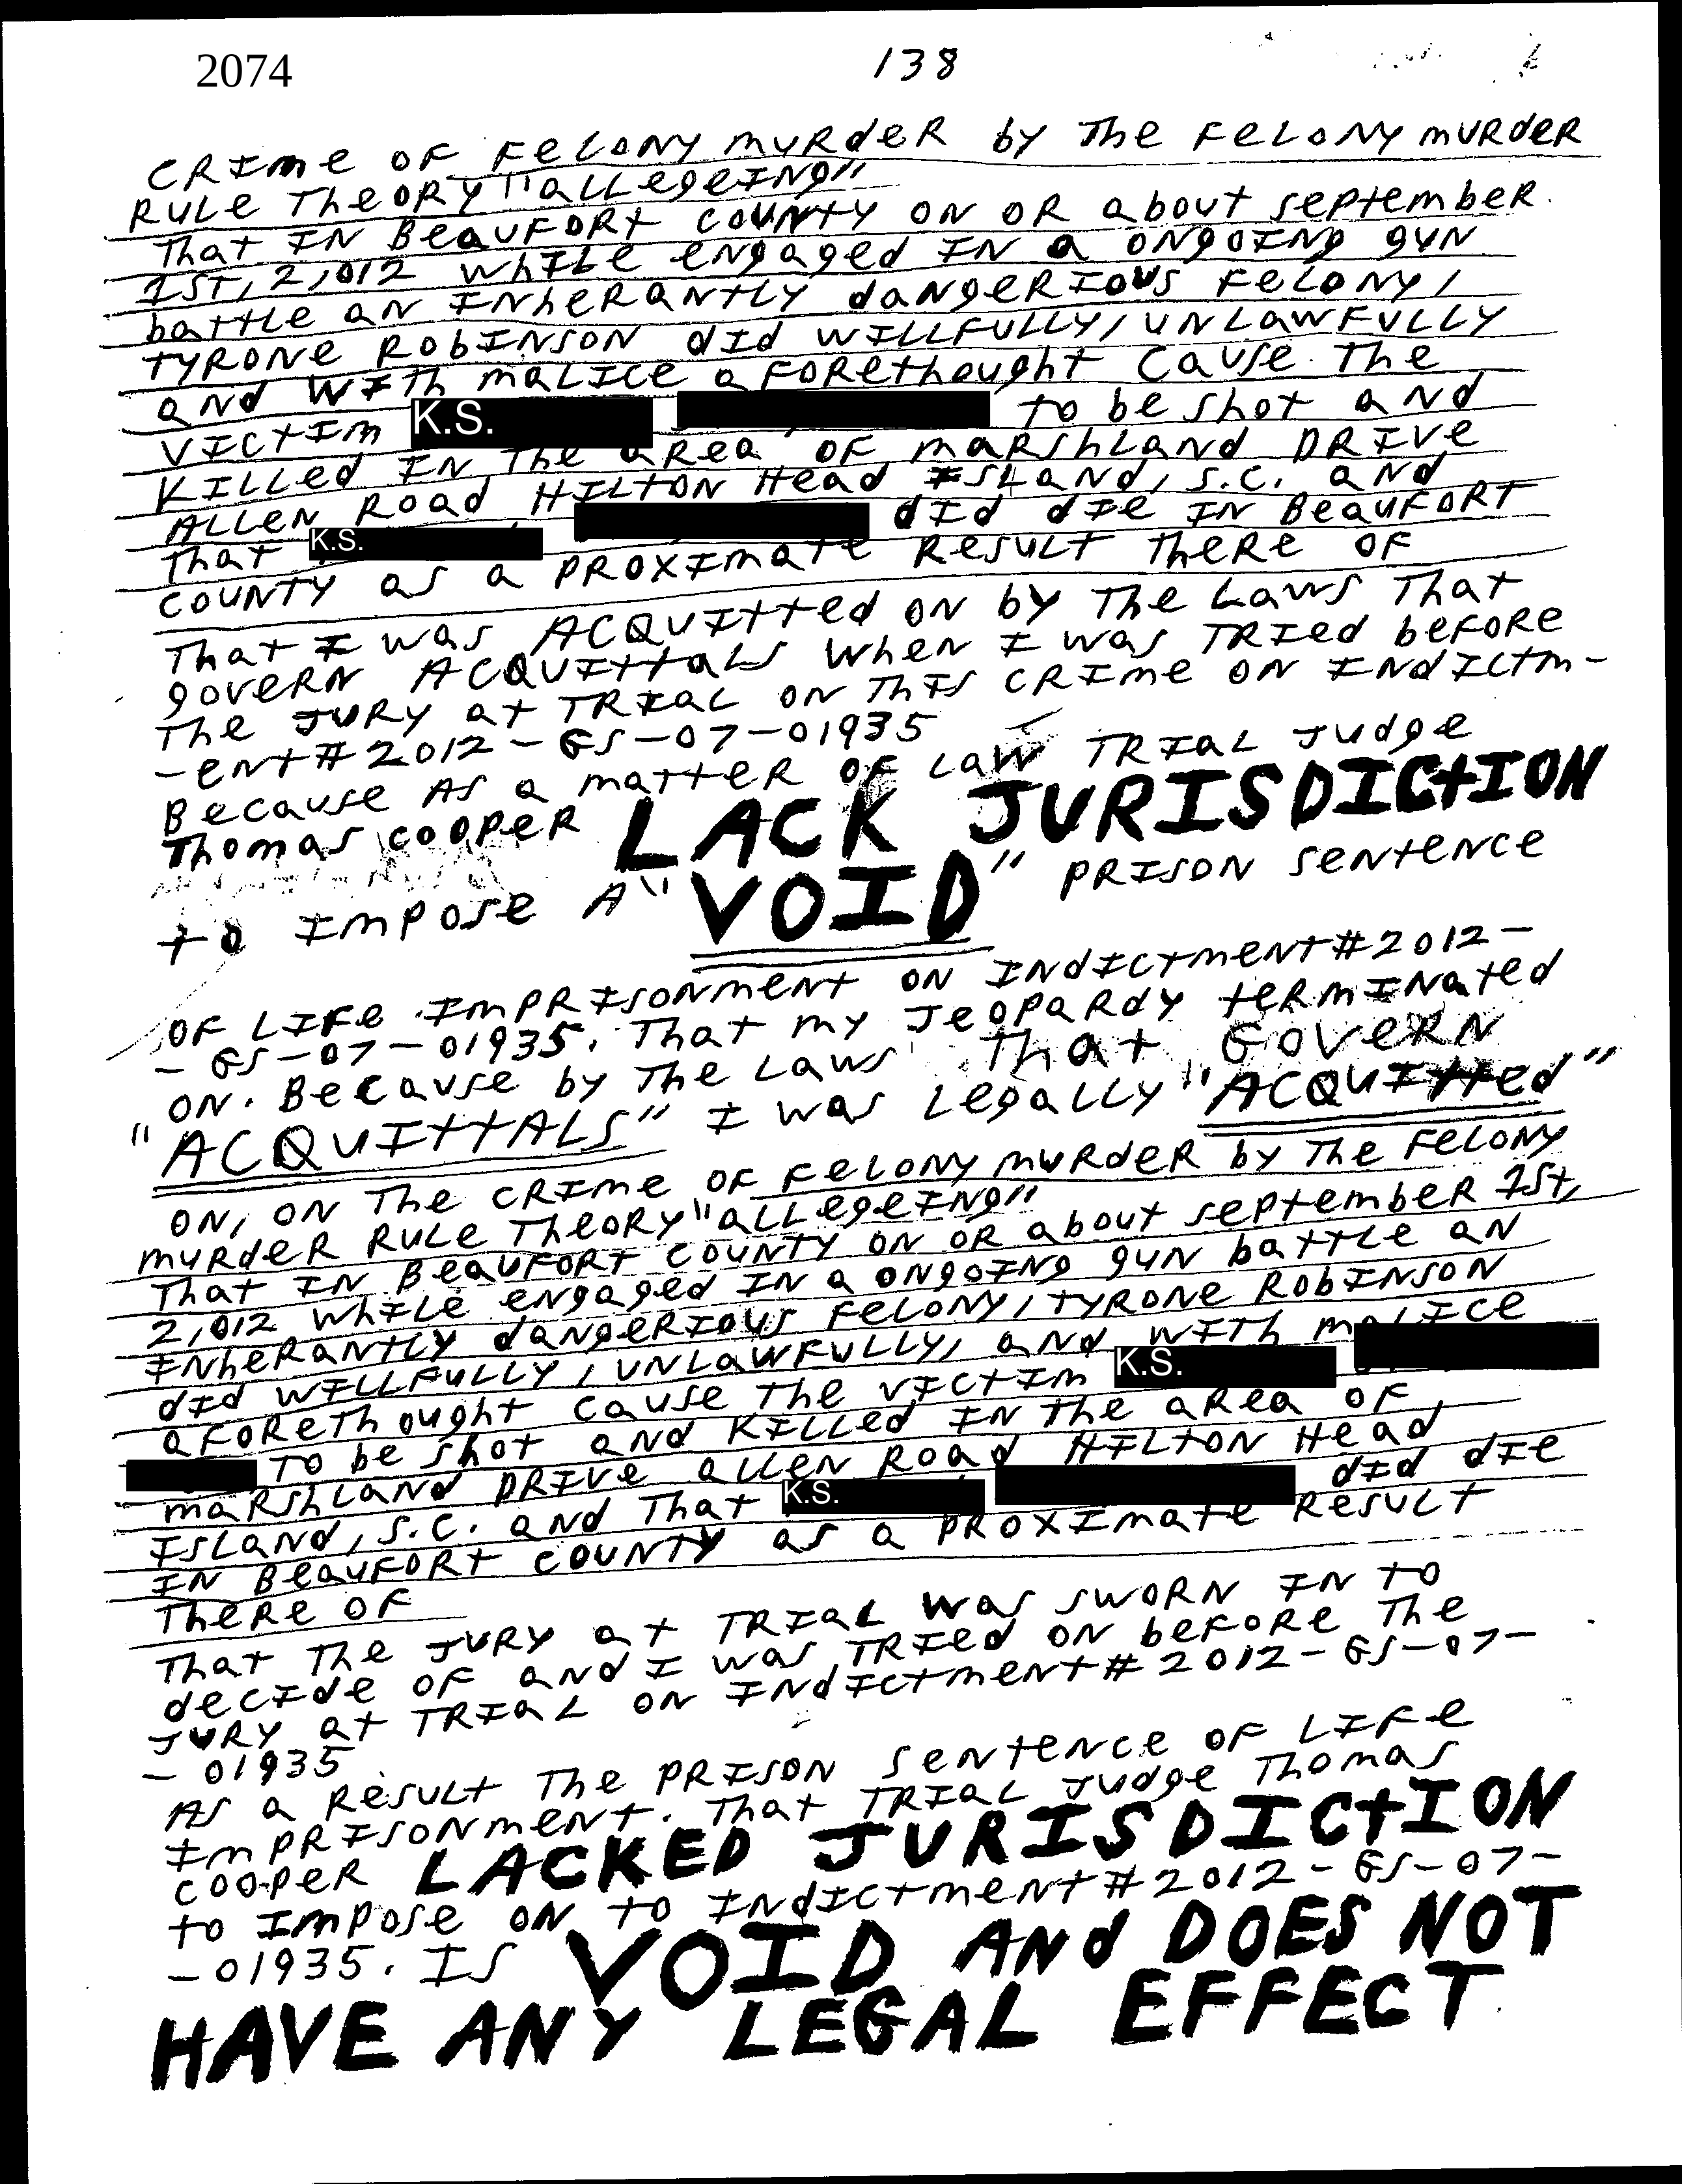 2074
138
CRIme OF FeLONy muRdeR by The FeLONy muRdeR
RULe TheORy "aLLegeING"
That IN BeauFORt COUNty ON OR about september
1ST, 2,012 whILe engaged IN a ONgOING gUN
battle an INheRaNtLy dangeRIOUS FeLONy,
TyRONe RObINSON dId WILLFULLy, UNLawFULLy
and WITh maLIce aFORethought Cause The
VIctIm K.S. to be shot and
KILLed IN The aRea OF maRshLand DRIve
ALLEN Road HILTON Head ISLand, S.C. and
That K.S. dId dIe IN BeauFORt
COUNTy as a PROXImate Result theRe OF
That I was ACQUItted ON by The Laws That
goveRN ACQUIttaLs wheN I was TRIed beFORe
The JURy at TRIaL ON ThIs CRIme ON INdIctm-
-ent# 2012-GS-07-01935
Because As a matteR OF Law TRIaL Judge
Thomas COOPeR LACK JURISDICtION
to Impose A "VOID" PRISON SeNteNce
OF LIFe ImPRISONment ON INdIctment# 2012-
-GS-07-01935. That my JeopaRdy teRmINated
ON. Because by The Laws That GOVeRN
"ACQUIttALS" I was Legally "ACQUItted"
ON, ON The CRIme OF FeLONy muRdeR by The FeLONy
muRdeR RULe TheORy "aLLegeING"
That IN BeauFORt COUNTy ON OR about septembeR 1st,
2,012 whILe engaged IN a ONgOING gUN battle an
INheRaNtLy dangeRIOUS FeLONy, TyRONe RObINSON
dId WILLFULLy, UNLawFULLy, and WITh maLIce
aFORethought Cause The VIctIm K.S.
TO be shot and KILLed IN The aRea OF
maRshLand DRIve aLLeN Road HILTON Head
ISLand, S.C. and That K.S. dId dIe
IN BeauFORt COUNTy as a PROXImate ResULt
TheRe OF
That The JURy at TRIaL was SwORN IN TO
decIde OF and I was TRIed ON beFORe The
JURy at TRIaL ON INdIctment# 2012-GS-07-
-01935
As a ResULt The PRISON SeNteNce OF LIFe
ImPRISONment. That TRIaL Judge Thomas
COOPeR LACKED JURISDICtION
to Impose ON TO INdIctment# 2012-GS-07-
-01935. IS VOID ANd DOES NOT
HAVE ANY LEGAL EFFECT